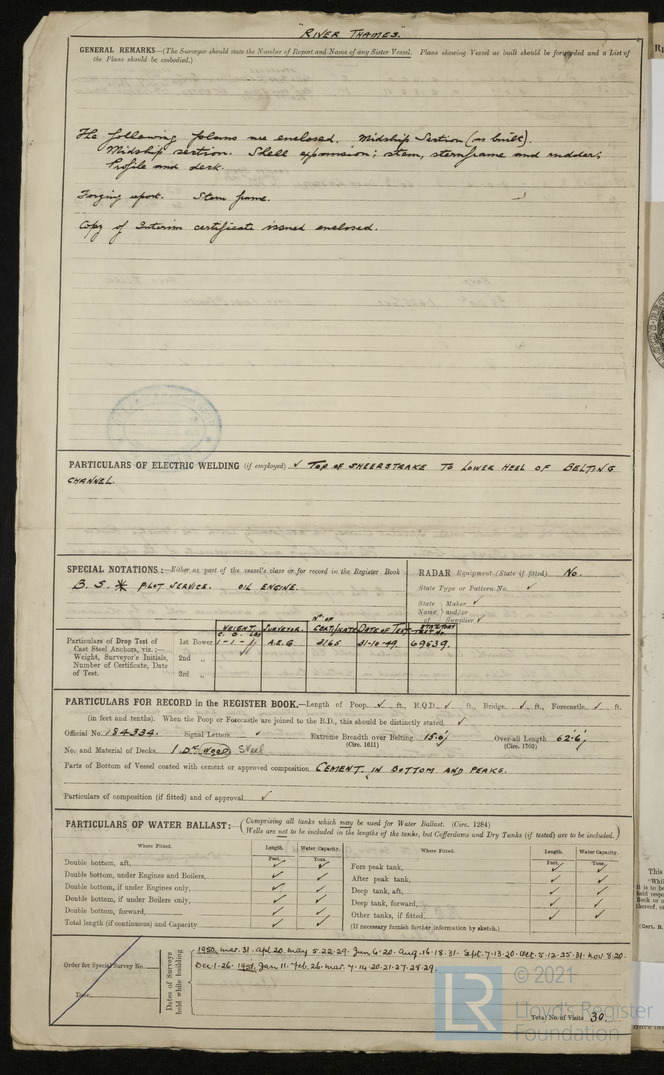 "RIVER THAMES."
GENERAL REMARKS—(The Surveyor should state the Number of Report and Name of any Sister Vessel. Plans showing Vessel as built should be forwarded and a List of
the Plans should be embodied.)
The following plans are enclosed. Midship Section (as built).
Midship section. Shell expansion; stem, sternframe and rudder;
Profile and deck.
Forging report. Stern frame.
Copy of Interim certificate issued enclosed.
PARTICULARS OF ELECTRIC WELDING (if employed) ✓ TOP OF SHEERSTRAKE TO LOWER HEEL OF BELTING
CHANNEL.
SPECIAL NOTATIONS:—Either as part of the vessel's class or for record in the Register Book
B.S.* PILOT SERVICE. OIL ENGINE.
RADAR Equipment (State if fitted) No.
State Type or Pattern No. ✓
State Name of Maker ✓ and/or Supplier ✓
WEIGHT. SURVEYOR. No OF CERTIFICATE DATE OF TEST
C. Q. LBS
Particulars of Drop Test of
Cast Steel Anchors, viz.:—
Weight, Surveyor's Initials,
Number of Certificate, Date
of Test.
1st Bower 1-1-1 A.E.G. 2165 31-10-49. 69639.
2nd „
3rd „
PARTICULARS FOR RECORD in the REGISTER BOOK.—Length of Poop ✓ ft., R.Q.D. ✓ ft., Bridge ✓ ft., Forecastle ✓ ft.
(in feet and tenths). When the Poop or Forecastle are joined to the B.D., this should be distinctly stated ✓
Official No. 184334. Signal Letters ✓ Extreme Breadth over Belting 15.0 Over-all Length 62.6
(Circ. 1611) (Circ. 1703)
No. and Material of Decks 1 DK Wood Steel
Parts of Bottom of Vessel coated with cement or approved composition CEMENT IN BOTTOM AND PEAKS.
Particulars of composition (if fitted) and of approval ✓
PARTICULARS OF WATER BALLAST:—(Comprising all tanks which may be used for Water Ballast. (Circ. 1284)
Wells are not to be included in the lengths of the tanks, but Cofferdams and Dry Tanks (if tested) are to be included.)
Where Fitted. Length. Water Capacity. Where Fitted. Length. Water Capacity.
Feet. Tons. Feet. Tons.
Double bottom, aft, ✓ ✓
Double bottom, under Engines and Boilers, ✓ ✓
Double bottom, if under Engines only, ✓ ✓
Double bottom, if under Boilers only, ✓ ✓
Double bottom, forward, ✓ ✓
Total length (if continuous) and Capacity ✓ ✓
Fore peak tank, ✓ ✓
After peak tank, ✓ ✓
Deep tank, aft, ✓ ✓
Deep tank, forward, ✓ ✓
Other tanks, if fitted, ✓ ✓
(If necessary furnish further information by sketch.)
Order for Special Survey No.
Date
Dates of Surveys
held while building
1950. Mar. 31. Apl 20. May 5.22.29. Jun 6.20. Aug. 16.18.31. Sept. 7.13.20. Oct. 5.12.25.31. Nov. 8.20.
Dec. 1.26. 1951. Jan 11. Feb. 26. Mar. 7.14.20.21.27.28.29.
Total No. of Visits 30
© 2021
LR
Lloyd's Register
Foundation